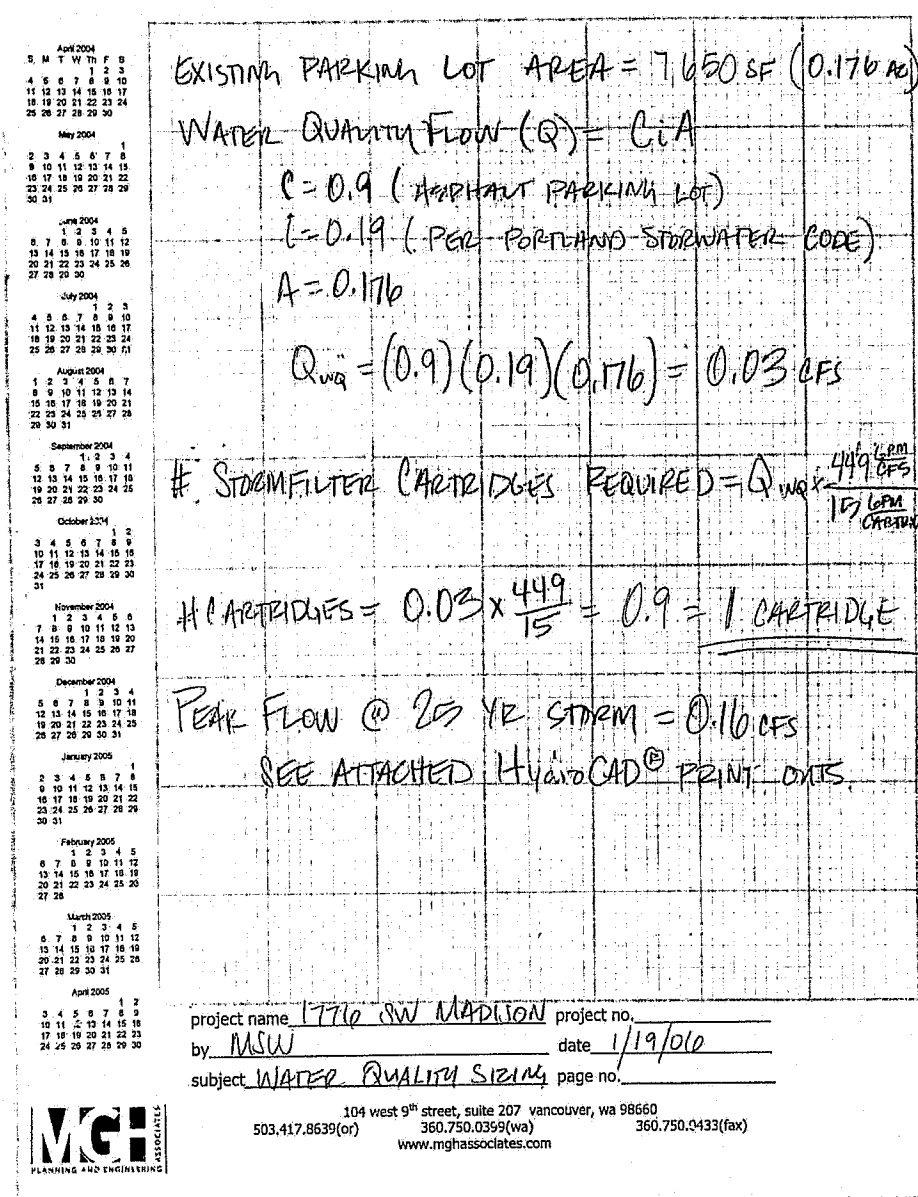 April 2004
S M T W Th F S
1 2 3
4 5 6 7 8 9 10
11 12 13 14 15 16 17
18 19 20 21 22 23 24
25 26 27 28 29 30
May 2004
1
2 3 4 5 6 7 8
9 10 11 12 13 14 15
16 17 18 19 20 21 22
23 24 25 26 27 28 29
30 31
June 2004
1 2 3 4 5
6 7 8 9 10 11 12
13 14 15 16 17 18 19
20 21 22 23 24 25 26
27 28 29 30
July 2004
1 2 3
4 5 6 7 8 9 10
11 12 13 14 15 16 17
18 19 20 21 22 23 24
25 26 27 28 29 30 31
August 2004
1 2 3 4 5 6 7
8 9 10 11 12 13 14
15 16 17 18 19 20 21
22 23 24 25 26 27 28
29 30 31
September 2004
1 2 3 4
5 6 7 8 9 10 11
12 13 14 15 16 17 18
19 20 21 22 23 24 25
26 27 28 29 30
October 2004
1 2
3 4 5 6 7 8 9
10 11 12 13 14 15 16
17 18 19 20 21 22 23
24 25 26 27 28 29 30
31
November 2004
1 2 3 4 5 6
7 8 9 10 11 12 13
14 15 16 17 18 19 20
21 22 23 24 25 26 27
28 29 30
December 2004
1 2 3 4
5 6 7 8 9 10 11
12 13 14 15 16 17 18
19 20 21 22 23 24 25
26 27 28 29 30 31
January 2005
1
2 3 4 5 6 7 8
9 10 11 12 13 14 15
16 17 18 19 20 21 22
23 24 25 26 27 28 29
30 31
February 2005
1 2 3 4 5
6 7 8 9 10 11 12
13 14 15 16 17 18 19
20 21 22 23 24 25 26
27 28
March 2005
1 2 3 4 5
6 7 8 9 10 11 12
13 14 15 16 17 18 19
20 21 22 23 24 25 26
27 28 29 30 31
April 2005
1 2
3 4 5 6 7 8 9
10 11 12 13 14 15 16
17 18 19 20 21 22 23
24 25 26 27 28 29 30
EXISTING PARKING LOT AREA = 7,650 SF (0.176 AC)
WATER QUALITY FLOW (Q) = CiA
C = 0.9 (ASPHALT PARKING LOT)
i = 0.19 (PER PORTLAND STORWATER CODE)
A = 0.176
QWQ = (0.9)(0.19)(0.176) = 0.03 CFS
# STORMFILTER CARTRIDGES REQUIRED = QWQ x 449 GPM/CFS / 15 GPM/CARTRIDGE
# CARTRIDGES = 0.03 x 449/15 = 0.9 = 1 CARTRIDGE
PEAK FLOW @ 25 YR STORM = 0.16 CFS
SEE ATTACHED HydroCAD® PRINT OUTS.
project name 1776 SW MADISON project no.
by MSW date 1/19/06
subject WATER QUALITY SIZING page no.
MGH ASSOCIATES
PLANNING AND ENGINEERING
104 west 9th street, suite 207 vancouver, wa 98660
503.417.8639(or) 360.750.0399(wa) 360.750.9433(fax)
www.mghassociates.com